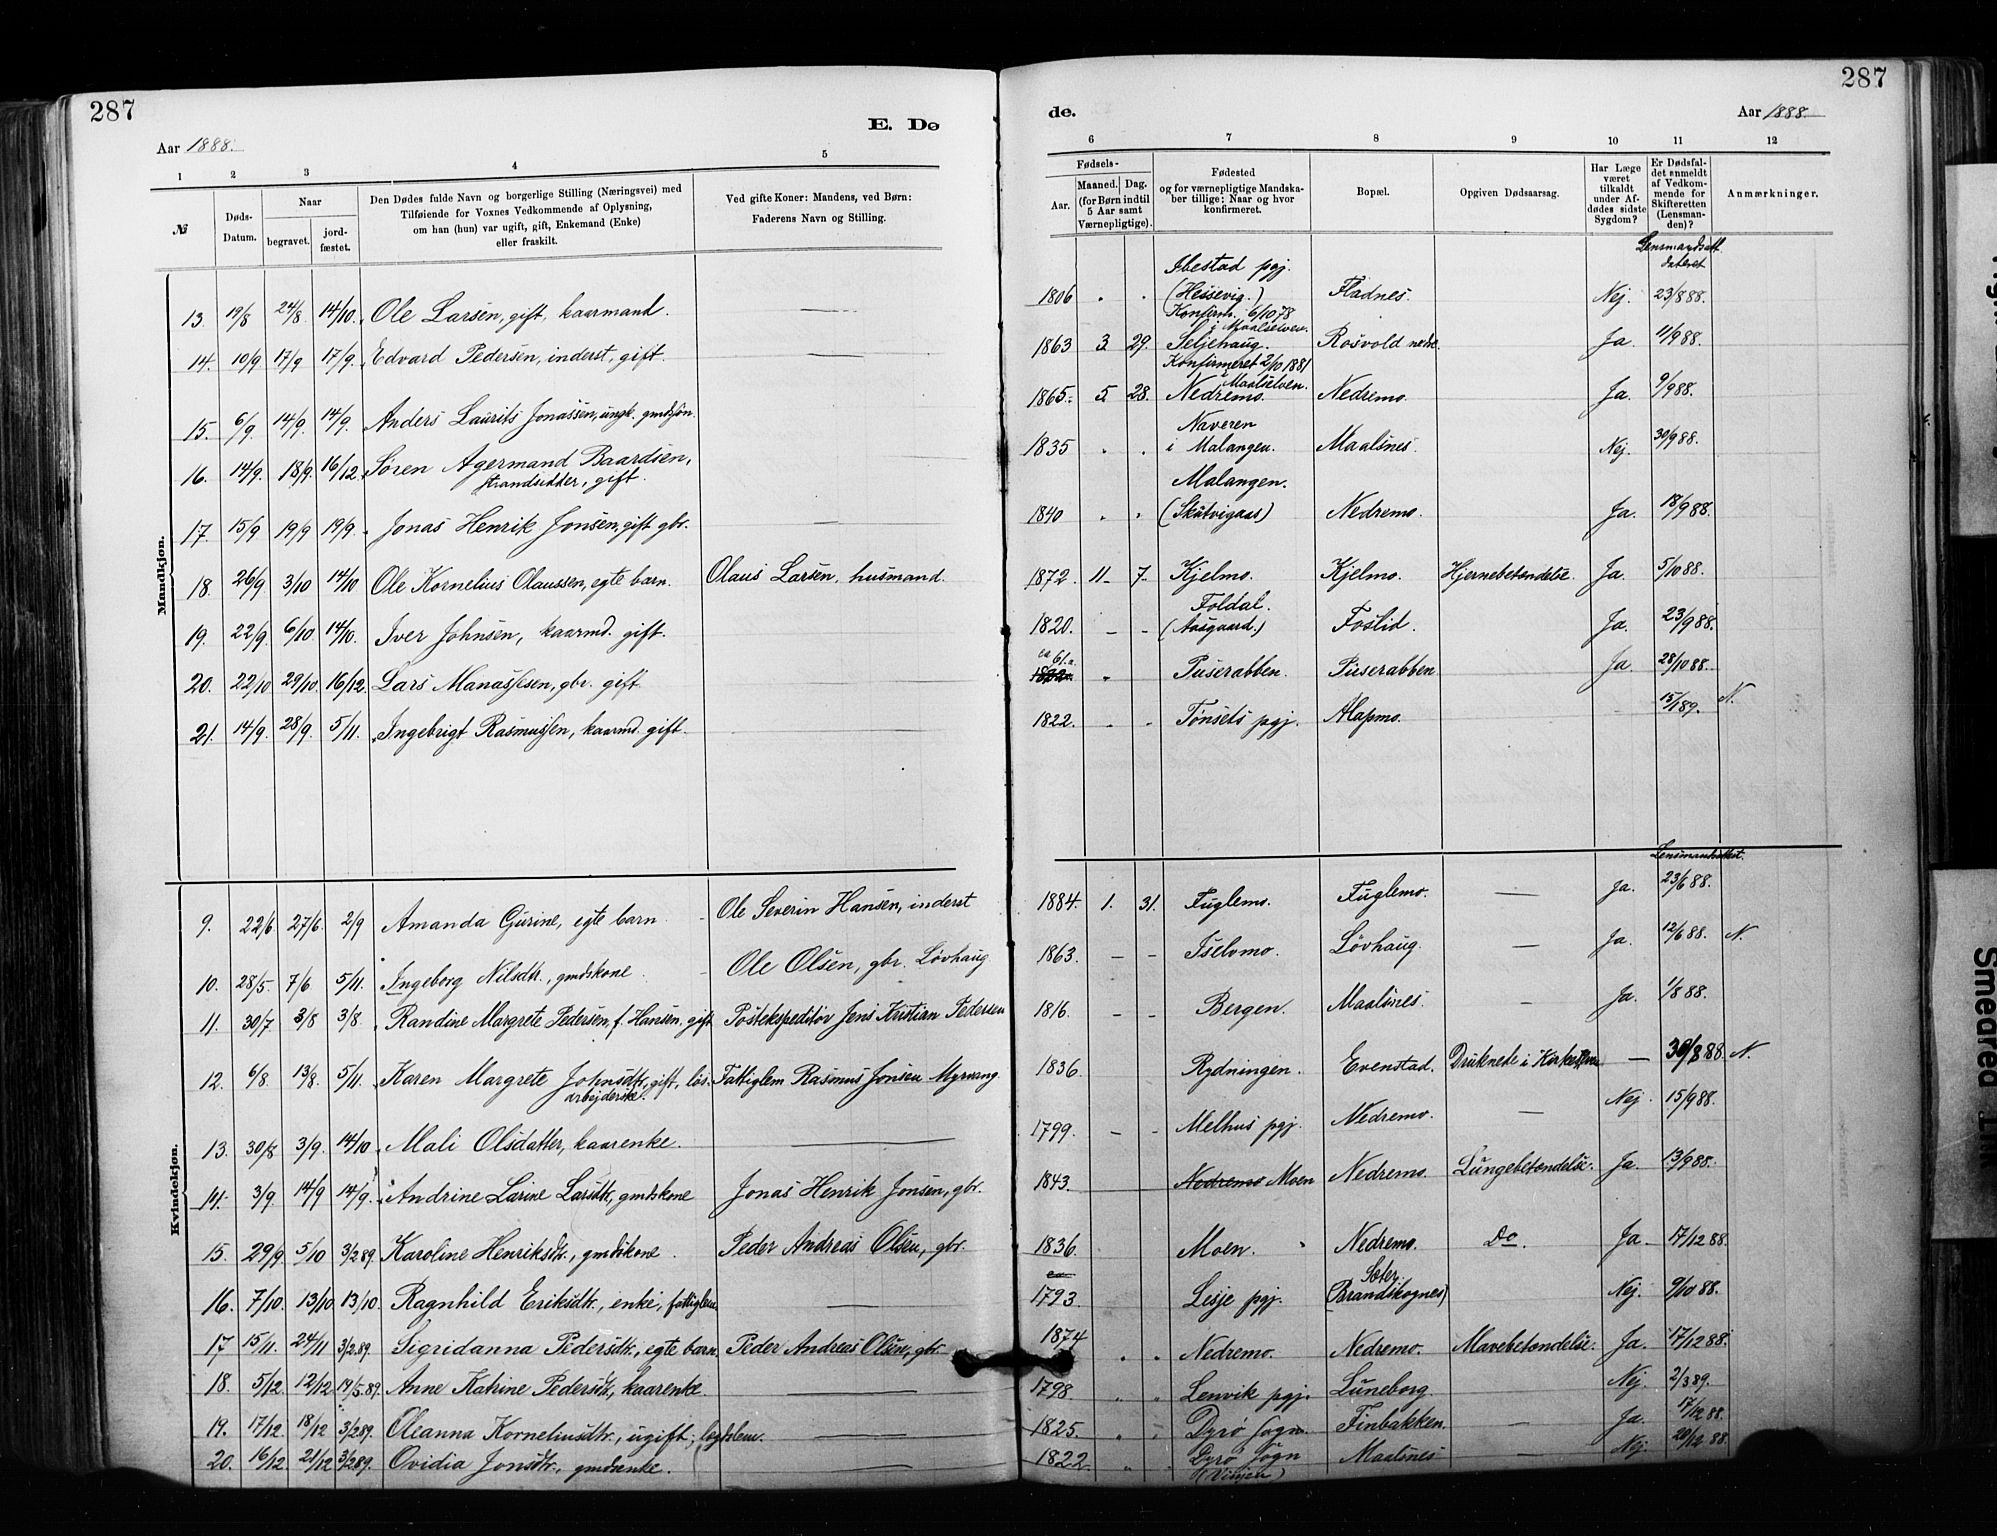 287
287
Aar 1888.
E. Dø
de.
Aar 1888.
1 2 3 4 5
6 7 8 9 10 11 12
№
Døds-Datum.
Naar
begravet.
jord-fæstet.
Den Dødes fulde Navn og borgerlige Stilling (Næringsvei) med
Tilføiende for Voxnes Vedkommende af Oplysning,
om han (hun) var ugift, gift, Enkemand (Enke)
eller fraskilt.
Ved gifte Koner: Mandens, ved Børn:
Faderens Navn og Stilling.
Fødsels-
Aar.
Maaned. Dag.
(for Børn indtil
5 Aar samt
Værnepligtige).
Fødested
og for værnepligtige Mandska-
ber tillige: Naar og hvor
konfirmeret.
Bopæl.
Opgiven Dødsaarsag.
Har Læge
været
tilkaldt
under Af-
dødes sidste
Sygdom?
Er Dødsfal-
det anmeldt
af Vedkom-
mende for
Skifteretten
(Lensman-
den)?
Anmærkninger.
Mandkjøn.
Lensmandsatt.
dateret
13. 19/8 24/8. 14/10. Ole Larsen, gift, kaarmand. — 1806 Ibestad pgj. (Hessevig.) Fladnes. Nej. 23/8 88.
14. 10/9 17/9 17/9. Edvard Pedersen, inderst, gift. — 1863 3. 29. Konfirm. 6/10 78 i Maalselven. Seljehaug. Rosvold nedre. Ja 11/9 88.
15. 6/9. 14/9. 14/9. Anders Laurits Jonassen, ungk. gmdsøn. 1865. 5. 28. Konfirmeret 2/10 1881 Maalselven. Nedremo. Nedremo. Ja. 9/9 88.
16. 14/9. 18/9. 16/12. Søren Agermand Baardsen, strandsidder, gift. 1835 Naveren i Malangen. Maalsnes. Nej. 30/9 88.
17. 15/9 19/9 19/9. Jonas Henrik Jonsen, gift gbr. — 1840 Malangen. (Skutvigaas) Nedremo. Ja. 18/9 88.
18. 26/9 3/10 14/10 Ole Kornelius Olaussen, egte barn. Olaus Larsen, husmand. 1872. 11 7 Kjelmo. Kjelmo. Hjernebetændelse. Ja. 5/10 88.
19. 22/9. 6/10. 14/10. Iver Johnsen, kaarmd. gift. 1820. Foldal. (Aasgaard.) Foslid. Ja. 23/9 88.
20. 22/10 29/10. 16/12. Lars Manassesen, gbr. gift. ca 61 a. Puserabben. Puserabben Ja 28/10 88.
21. 14/9. 28/9. 5/11. Ingebrigt Rasmussen, kaarmd. gift. 1822. Tønsets pgj. Alapmo. 15/1 89. N.
Kvindekjøn.
Lensmandsattest.
9. 22/6 27/6. 2/9 Amanda Gurine, egte barn Ole Severin Hansen, inderst 1884. 1. 31. Fuglemo. Fuglemo. — Ja. 23/6 88.
10. 28/5. 7/6 5/11. Ingeborg Nilsdtr., gmdskone. Ole Olsen, gbr. Løvhaug 1863. Iselvmo. Løvhaug. — Ja. 12/6 88. N.
11. 30/7 3/8 3/8. Randine Margrete Pedersen, f. Hansen. gift Postekspeditør Jens Kristian Pedersen 1816. Bergen. Maalsnes. — Ja. 1/8 88.
12. 6/8. 13/8. 5/11. Karen Margrete Johnsdtr, gift, løs-arbejderske. Fattiglem Rasmus Jonsen Myrvang 1836. Rydningen. Evenstad. Druknede i — 30/8 88. N.
13. 30/8 3/9. 14/10 Mali Olsdatter, kaarenke. — 1799. Melhus pgj. Nedremo. — Nej. 15/9 88.
14. 3/9. 14/9 14/9. Andrine Larine Larsdtr, gmdskone Jonas Henrik Jonsen, gbr. 1843. Nedremo Moen Nedremo. Lungebetændelse. Ja. 13/9 88.
15. 29/9 5/10 3/2 89. Karoline Henriksdtr., gmdskone. Peder Andreas Olsen, gbr. 1836. Moen. Nedremo. Do. Ja 17/12 88.
16. 7/10. 13/10 13/10. Ragnhild Eriksdtr., enke, fattiglem — ca 1793. Lesje pgj. Sæter. (Brandskognes) Nej. 9/10 88.
17 15/11. 24/11 3/2 89. Sigridanna Pedersdtr., egte barn. Peder Andreas Olsen, gbr. 1874 Nedremo. Nedremo. Mavebetændelse. Ja. 17/12 88.
18. 5/12. 12/12 19/5 89. Anne Katrine Pedersdtr, kaarenke. — 1798 Lenvik pgj. Luneborg. Nej. 2/3 89.
19. 17/12. 18/12 3/2 89. Oleanna Korneliusdtr., ugift, legdslem. — 1825. Dyrø Sogn. Finbakken. — Ja. 17/12 88.
20. 16/12. 21/12 3/2 89. Ovidia Jonsdtr., gmdsenke. — 1822. Dyrø Sogn Maalsnes — Nej. 20/12 88.
Smeared Ink